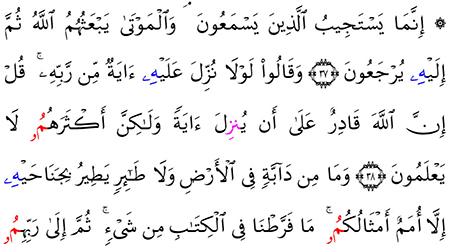 ۞ إِنَّمَا يَسْتَجِيبُ ٱلَّذِينَ يَسْمَعُونَ ۘ وَٱلْمَوْتَىٰ يَبْعَثُهُمُ ٱللَّهُ ثُمَّ
إِلَيْهِۦ يُرْجَعُونَ ﴿٣٧﴾ وَقَالُوا۟ لَوْلَا نُزِّلَ عَلَيْهِۦ ءَايَةٌ مِّن رَّبِّهِۦ ۚ قُلْ
إِنَّ ٱللَّهَ قَادِرٌ عَلَىٰٓ أَن يُنزِلَ ءَايَةً وَلَٰكِنَّ أَكْثَرَهُمُۥ لَا
يَعْلَمُونَ ﴿٣٨﴾ وَمَا مِن دَآبَّةٍ فِى ٱلْأَرْضِ وَلَا طَٰٓئِرٍ يَطِيرُ بِجَنَاحَيْهِۦ
إِلَّآ أُمَمٌ أَمْثَالُكُمُۥ ۚ مَا فَرَّطْنَا فِى ٱلْكِتَٰبِ مِن شَىْءٍ ۚ ثُمَّ إِلَىٰ رَبِّهِمُۥ